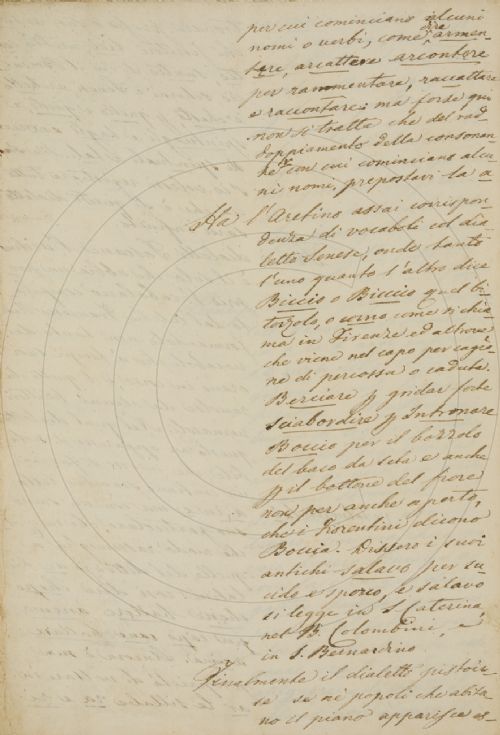 per cui cominciano alcuni
nomi o verbi, come armen-
tare, arcattare arcontare
per rammentare, raccattare
e raccontare: ma forse qui
non si tratta che del rad
doppiamento della consonan-
te con cui cominciano alcu
ni nomi, prepostavi la a
Ha l'Aretino assai corrispon-
denza di vocaboli col dia
letto Senese, onde tanto
l'uno quanto l'altro dice
Biccio o Biccio quel bi
torzolo, o corno come si chia
ma in Firenze ed altrove
che viene nel capo per cagio
ne di percossa o caduta.
Berciare p gridar forte
sciabordire p Intronare
Boccio per il bozzolo
del baco da seta e anche
p il bottone del fiore
non per anche aperto,
che i Fiorentini dicono
Boccia. Dissero i suoi
antichi salavo per su
cido e sporco, e salavo
si legge in S. Caterina,
nel B. Colombini, e
in S. Bernardino
Finalmente il dialetto pistoie
se se ne' popoli che abita
no il piano apparisce es-